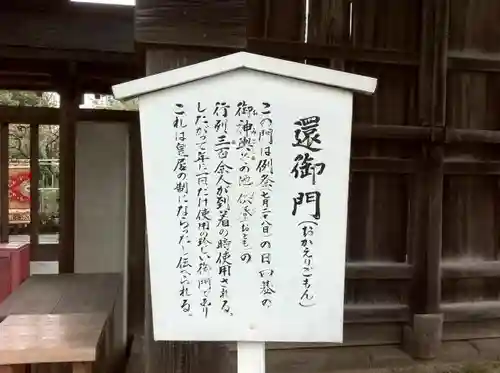 還御門(おかえりごもん)
この門は例祭(七月二八日)の日 四基の
御神輿その他 供奉(おとも)の
行列三百余人が到着の時使用される。
したがって年に一回だけ使用の珍しい御門であり
これは皇居の制にならったと伝へられる。